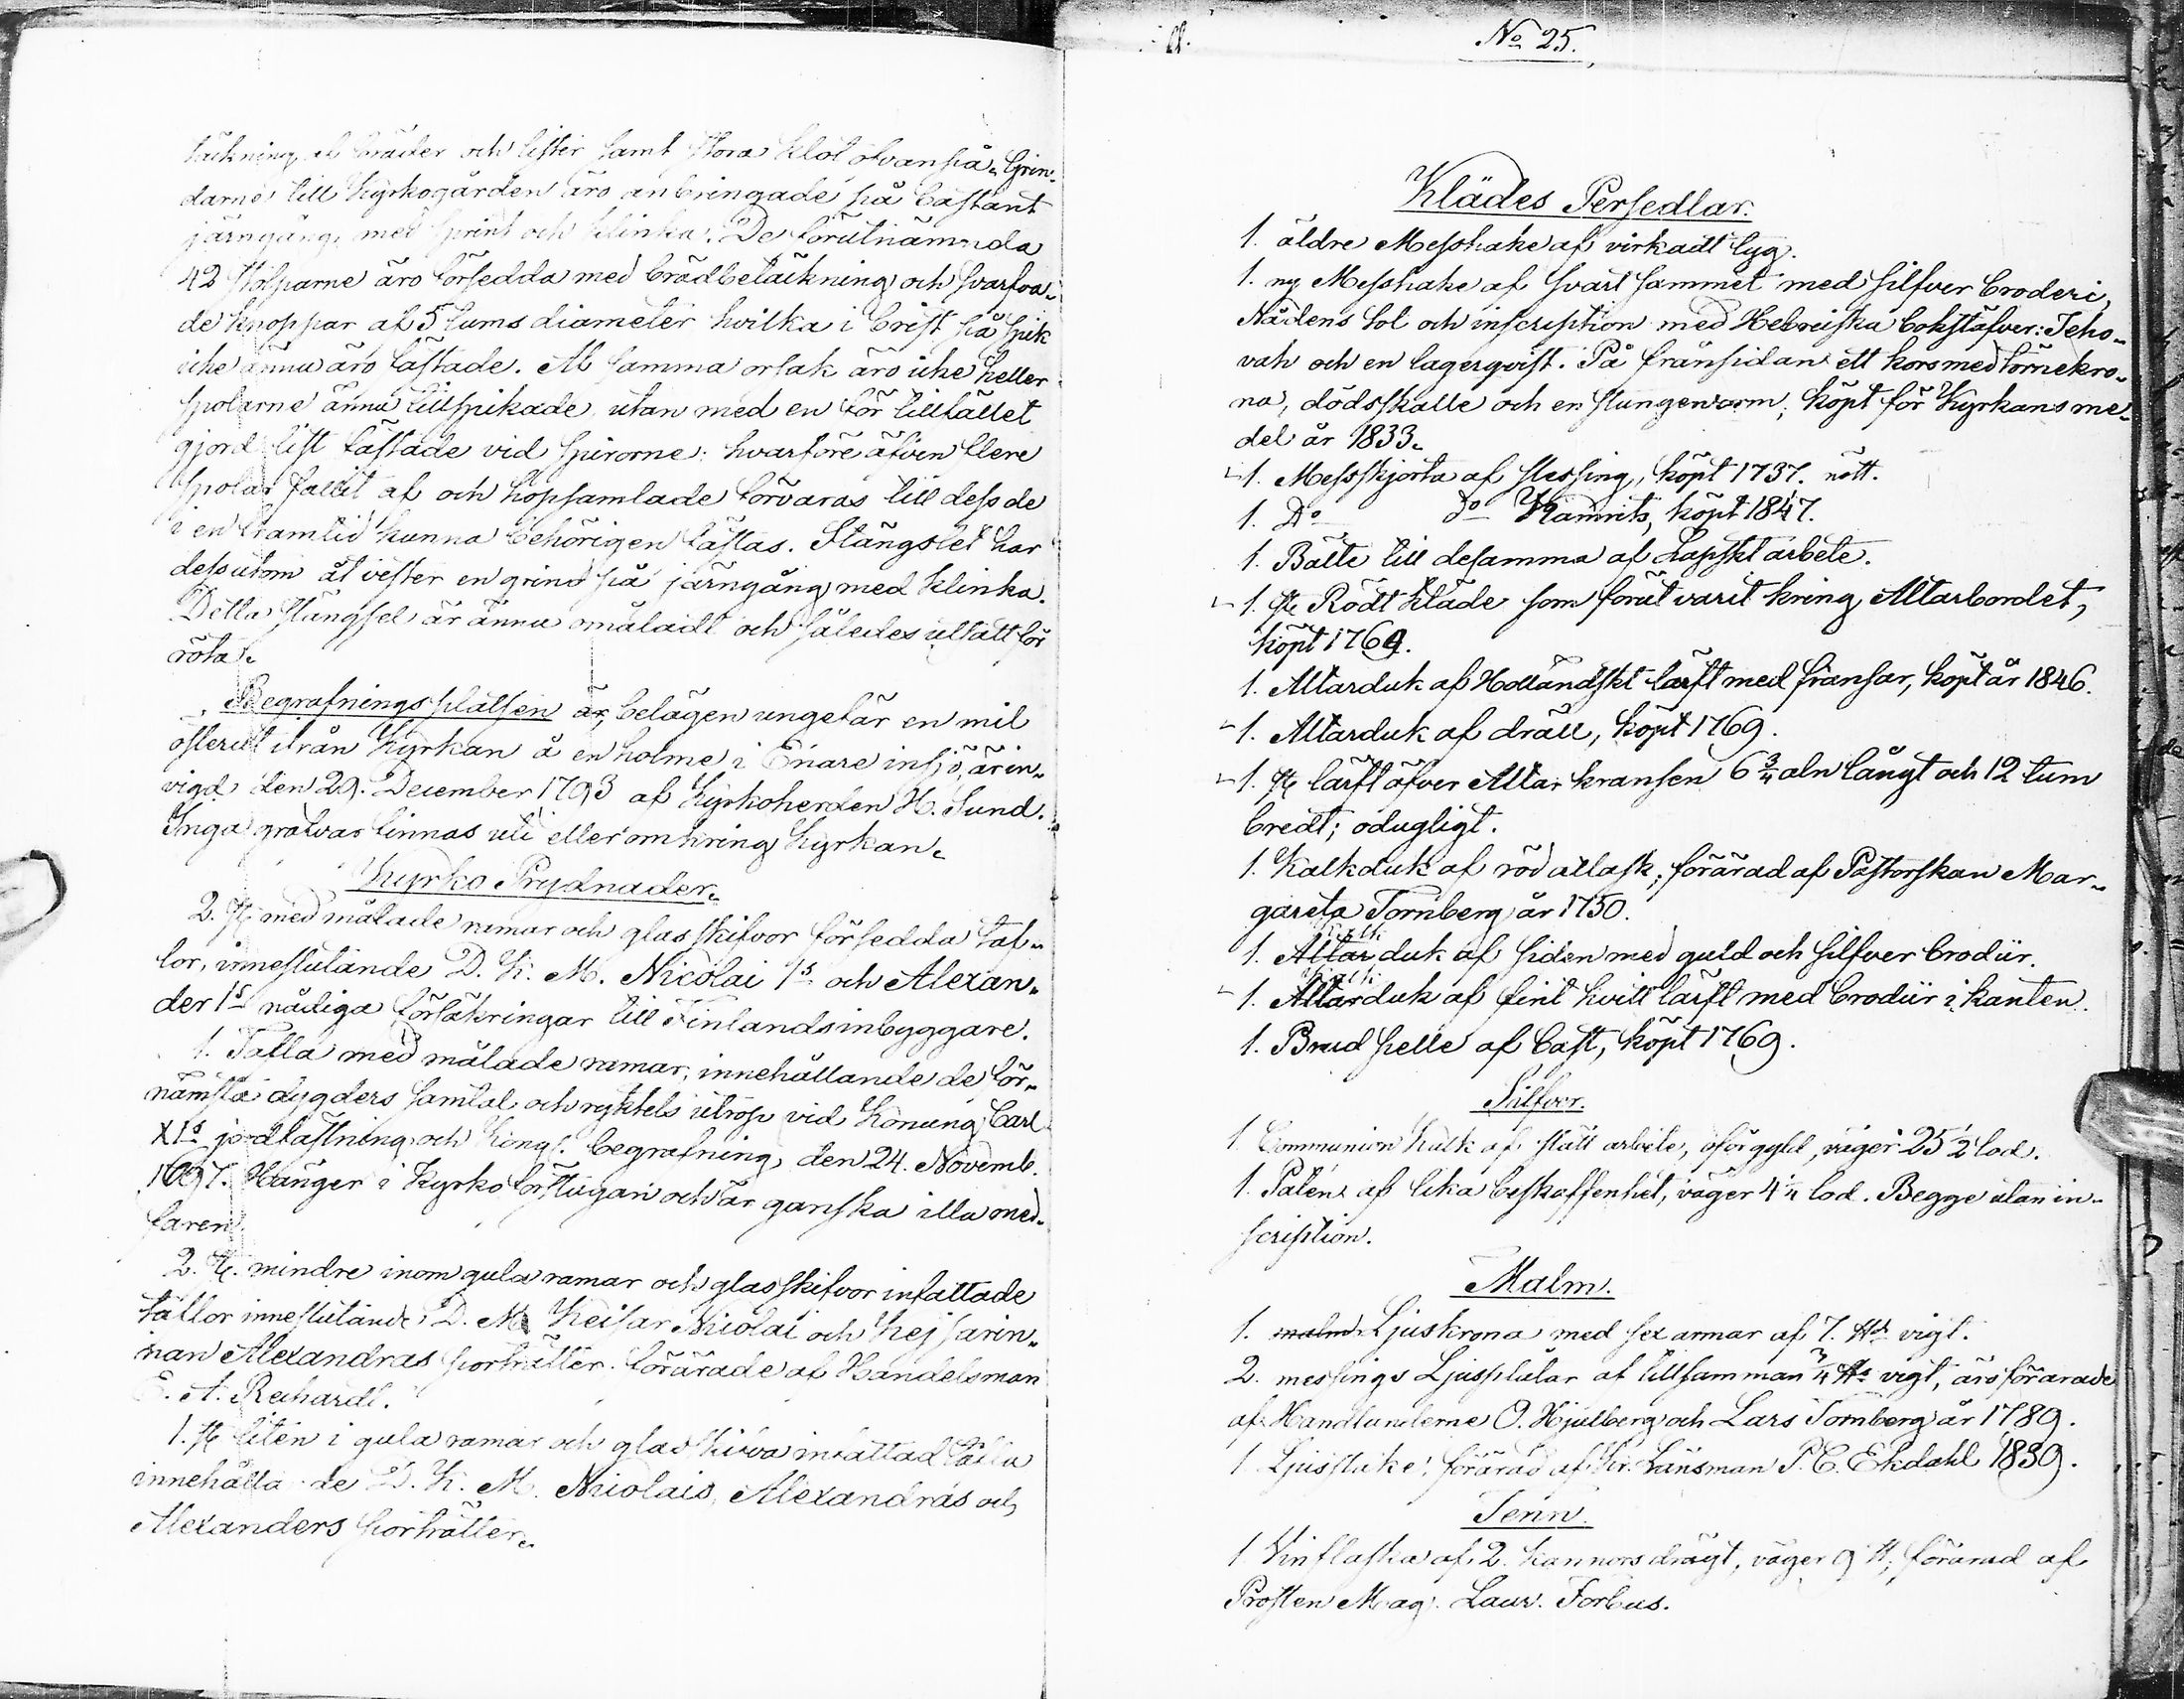 täckning af bräder och lister samt stora klot ofvanpå. Grin-
darne till Kyrkogården äro anbringade på bastant
järngång, med sprint och klinka. De förutnämnda
42 stolparne äro försedda med brädbetäckning och svarfva-
de knoppar af 5 tums diameter hvilka i brist på spik
icke ännu äro fästade. Af samma orsak äro icke heller
spolarne ännu tillspikade utan med en för tillfället
gjord list fästade vid spirorne: hvarföre äfven flere
spolar fallit af och hopsamlade förvaras till dess de
i en framtid kunna behörigen fästas. Stängslet har
dessutom åt vester en grind på järngång med klinka.
Detta stängsel är ännu omåladt och således utsatt för
röta.
Begrafningsplatsen är belägen ungefär en mil
österut ifrån Kyrkan å en holme i Enare insjö, är in-
vigd den 29. December 1793 af Kyrkoherden H. Sund.
Inga grafvar finnas uti eller omkring Kyrkan.
Kyrko Prydnader.
2. st. med målade ramar och glasskifvor försedda taf-
lor, inneslutande D. K. M. Nicolai 1s och Alexan-
der 1s nådiga försäkringar till Finlands inbyggare.
1. Tafla med målade ramar, innehållande de för-
nämsta dygders samtal och ryktets utrop vid Konung Carl
XIs jordfästning och Kongl. begrafning, den 24. Novemb.
1697. Hänger i Kyrko förstugan och är ganska illa med-
faren.
2. st. mindre inom gula ramar och glasskifvor infattade
taflor inneslutande D. M. Keisar Nicolai och Kejsarin-
nan Alexandras porträtter. förärade af Handelsman
E. A. Reichardt.
1. st liten i gula ramar och glasskifva infattad tafla
innehålla de D. K. M. Nicolais, Alexandras och
Alexanders porträtter.
No 25.
Klädes Persedlar.
1. äldre Messhake af virkadt tyg.
1. ny Messhake af svart sammet med silfver broderi,
Nådens sol och inscription med Hebreiska bokstäfver: Jeho-
vah och en lagerqvist. På frånsidan ett kors med törnekro-
na, dödsskalle och en stungenorm; köpt för Kyrkans me-
del år 1833.
1. Messskjorta af slessing, köpt 1737. nött.
1. Do do Kamrits, köpt 1847.
1. Bälte till desamma af Lapskt arbete.
1. st Rödt kläde som förut varit kring Altarbordet,
köpt 1769.
1. Altarduk af Holländskt lärft med fransar, köpt år 1846.
1. Altarduk af dräll, köpt 1769.
1. st lärft öfver Altar kransen 6 3/4 aln långt och 12 tum
bredt; odugligt.
1. Kalkduk af röd atlask, förärad af Pastorskan Mar-
gareta Tornberg år 1750.
1. Altar duk af siden med guld och silfver brodür.
1. Altarduk af fint hvitt lärft med brodür i kanten.
1. Brudpelle af bast, köpt 1769.
Silfver.
1 Communion kalk af slätt arbete, oförgyld, väger 25 1/2 lod.
1. Patén af lika beskaffenhet, väger 4 1/4 lod. Begge utan in-
scription.
Malm.
1. malm Ljuskrona med sex armar af 7. ℔s vigt.
2. messings Ljusplåtar af tillsamman 3/4 ℔s vigt, äro förärade
af Handlanderne O. Hjulberg och Lars Tornberg år 1789.
1 Ljusstake, förärad af Kr. Länsman P. C. Ekdahl 1839.
Tenn.
1 Vinflaska af 2. kannors drägt, väger 9 ℔, förärad af
Prosten Mag. Laur. Forbus.